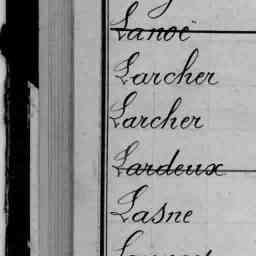 Lanoë
Larcher
Larcher
Lardeux
Lasne